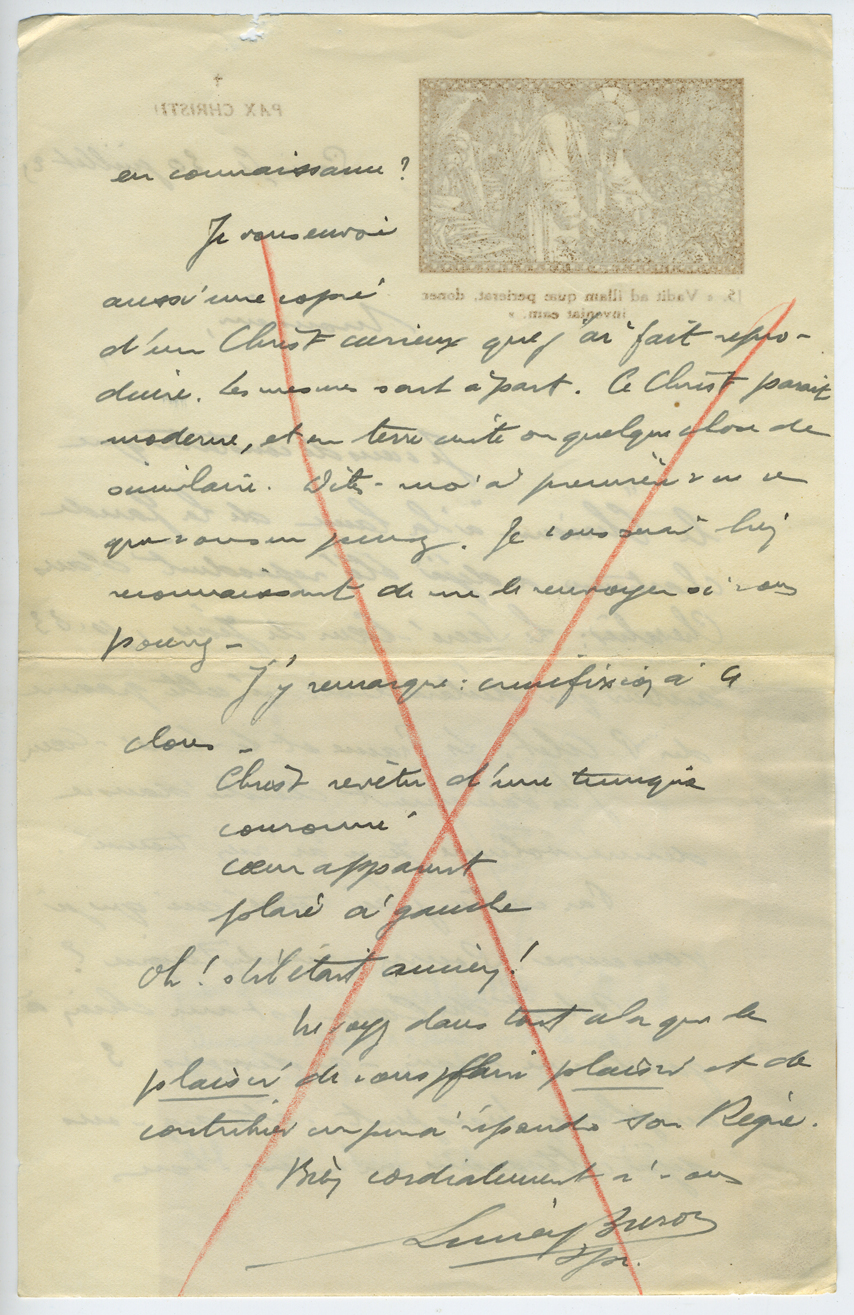 PAX CHRISTI
en connaissance ?
Je vous envoie
aussi une copie
d'un Christ curieux que j'ai fait repro-
duire. Les mesures sont à part. Ce Christ parait
moderne, et en terre cuite ou quelque chose de
similaire. Dites-moi à première vue ce
que vous en pensez. Je vous serai bien
reconnaissant de me le renvoyer si vous
pouvez -
J'y remarque : crucifixion à 4
clous -
Christ revêtu d'une tunique
couronné
cœur apparent
placé à gauche
Oh ! s'il était ancien !
Ne voyez dans tout cela que le
plaisir de vous faire plaisir et de
contribuer un peu à répandre son Règne.
Bien cordialement à vous
Lucien Buron
15. « Vadit ad illam quæ perierat, donec
inveniat eam. »